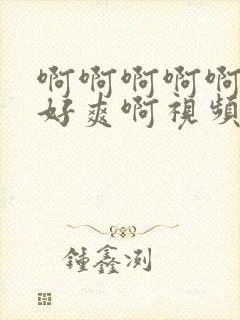 啊啊啊啊啊
好爽啊視頻
鍾鑫洌